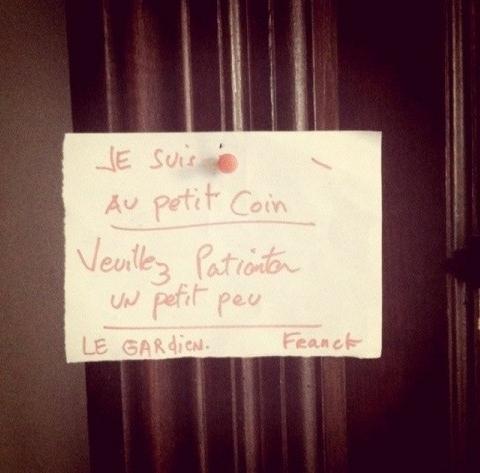 JE suis
Au petit Coin
Veuillez Patianter
un petit peu
LE GARdieN. Franck